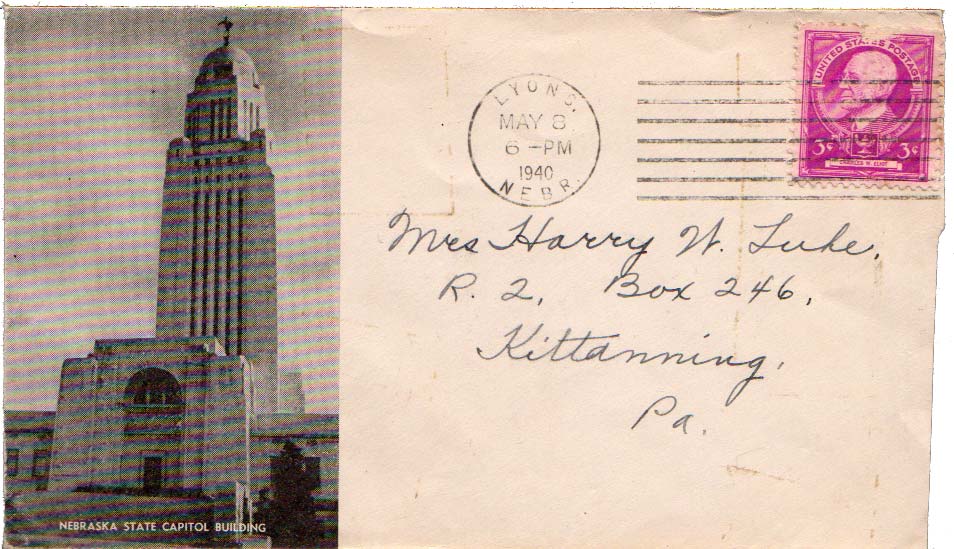 UNITED STATES POSTAGE
3¢ 3¢
CHARLES W. ELIOT
LYONS,
MAY 8
6-PM
1940
NEBR.
Mrs Harry W. Luke,
R. 2, Box 246,
Kittanning,
Pa.
NEBRASKA STATE CAPITOL BUILDING